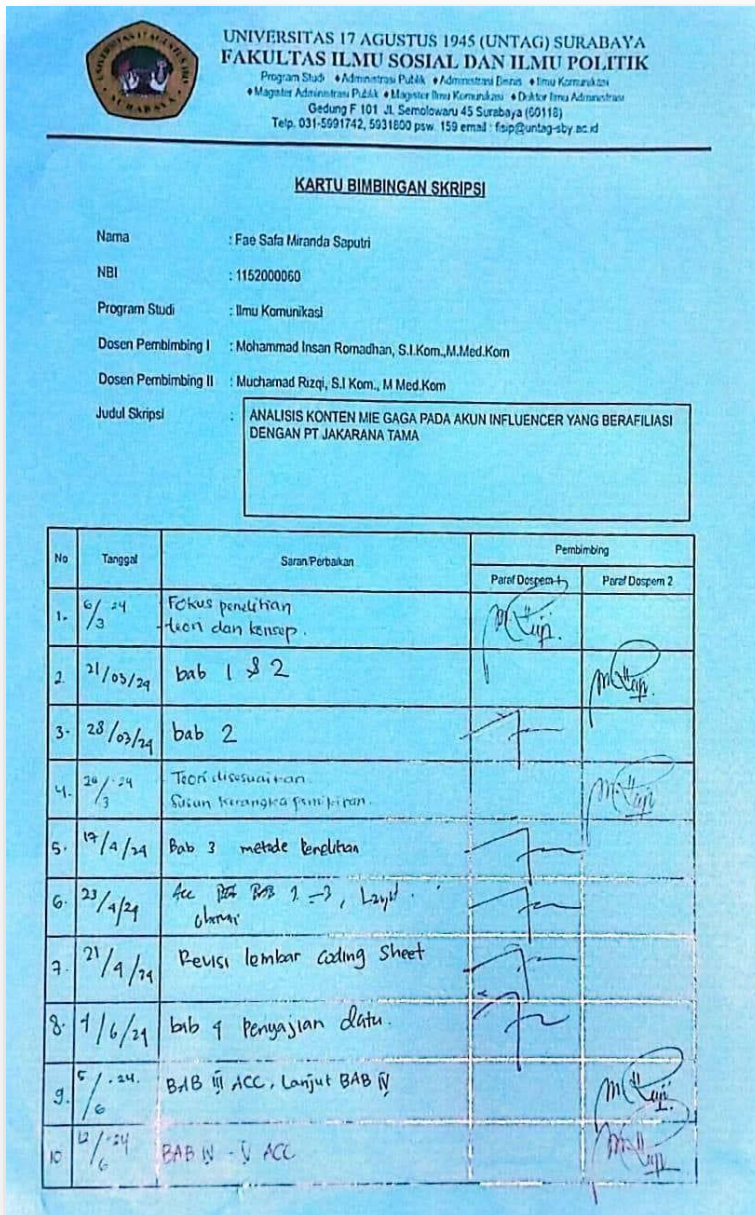 UNIVERSITAS 17 AGUSTUS 1945 (UNTAG) SURABAYA
FAKULTAS ILMU SOSIAL DAN ILMU POLITIK
Program Studi ♦ Administrasi Publik ♦ Administrasi Bisnis ♦ Ilmu Komunikasi
♦ Magister Administrasi Publik ♦ Magister Ilmu Komunikasi ♦ Doktor Ilmu Administrasi
Gedung F 101 Jl. Semolowaru 45 Surabaya (60118)
Telp. 031-5991742, 5931800 psw. 159 email : fisip@untag-sby.ac.id
KARTU BIMBINGAN SKRIPSI
Nama : Fae Safa Miranda Saputri
NBI : 1152000060
Program Studi : Ilmu Komunikasi
Dosen Pembimbing I : Mohammad Insan Romadhan, S.I.Kom.,M.Med.Kom
Dosen Pembimbing II : Muchamad Rizqi, S.I Kom., M Med.Kom
Judul Skripsi : ANALISIS KONTEN MIE GAGA PADA AKUN INFLUENCER YANG BERAFILIASI
DENGAN PT JAKARANA TAMA
No Tanggal Saran/Perbaikan Pembimbing
Paraf Dospem 1 Paraf Dospem 2
1. 6/3 24 Fokus penelitian
teori dan konsep.
2. 21/03/24 bab 1 & 2
3. 28/03/24 bab 2
4. /3 -24 Teori disesuaikan.
Susun kerangka pemikiran.
5. 17/4/24 Bab 3 metode Penelitian
6. 23/4/24 Acc BAB 1-3, Lanjut
7. 21/4/24 Revisi lembar Coding Sheet
8. /6/24 bab 4 Penyajian data.
9. 5/6 -24. BAB III ACC, Lanjut BAB IV
10 12/6 -24 BAB IV - V ACC